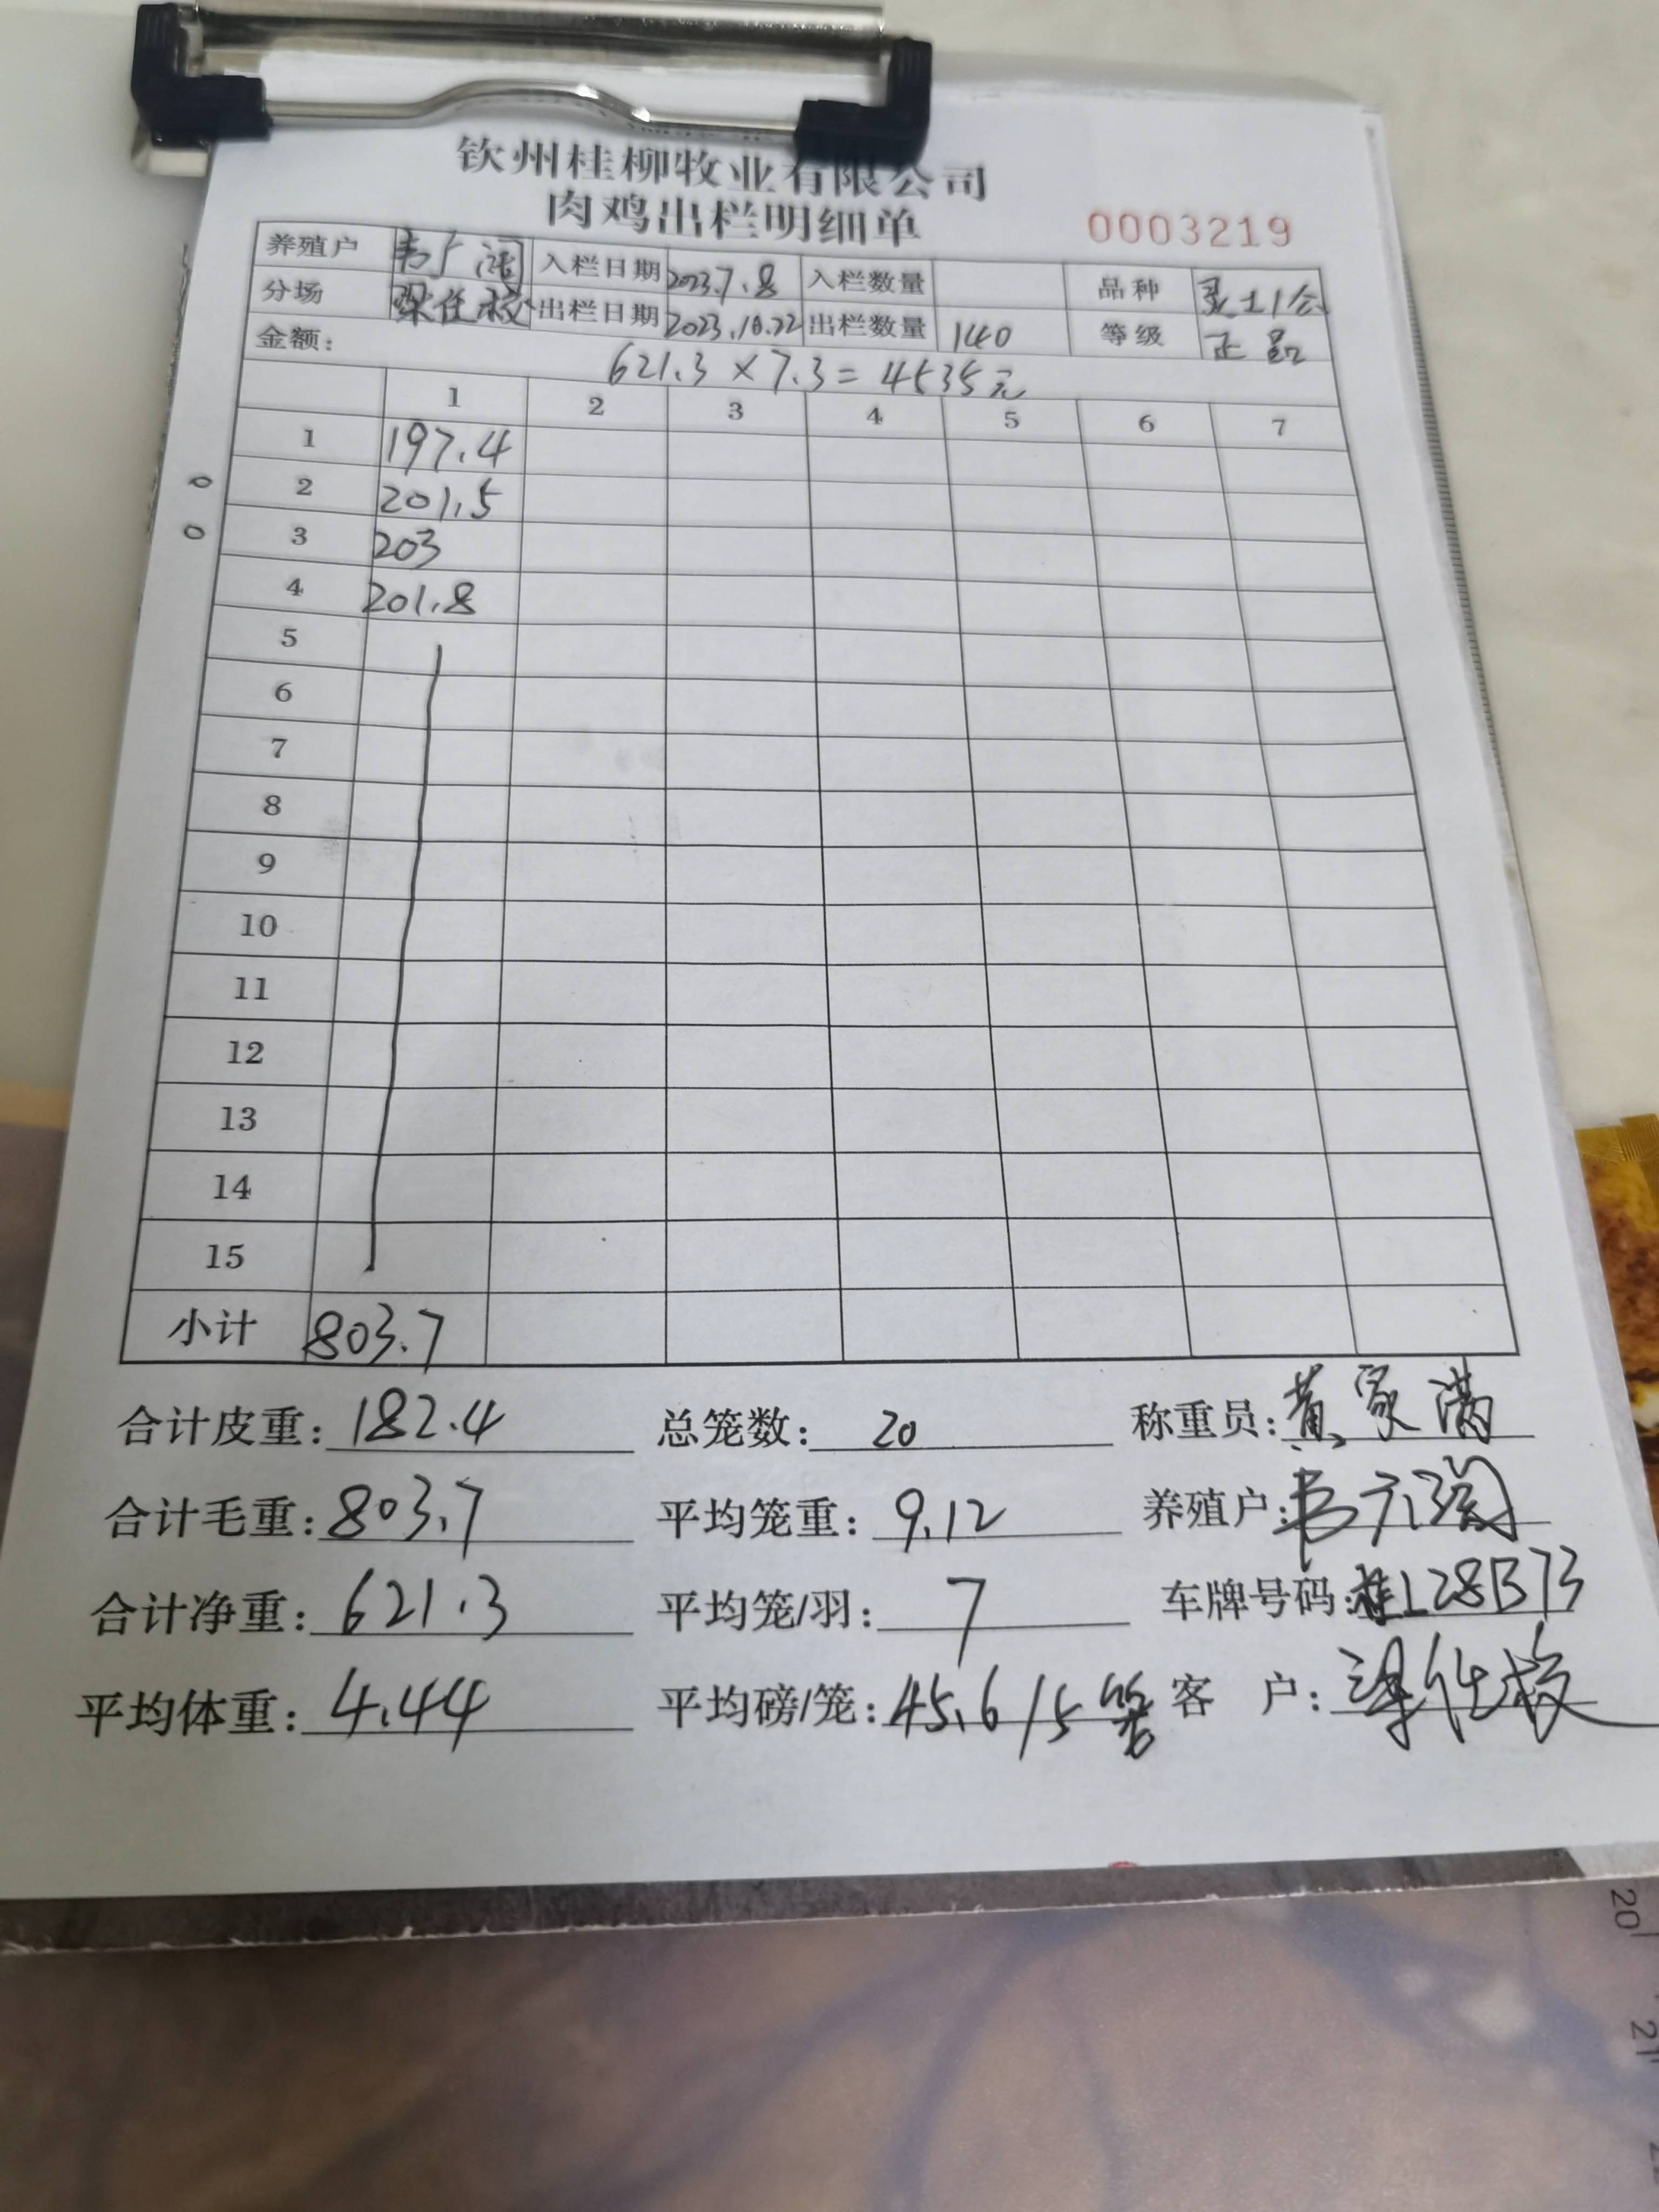 钦州桂柳牧业有限公司
肉鸡出栏明细单
0003219
养殖户 韦广 入栏日期 2023.7.8 入栏数量 品种 灵土1公
分场 出栏日期 2023.10.22 出栏数量 140 等级 正品
金额: 621.3×7.3=4535元
1 2 3 4 5 6 7
1 197.4
2 201.5
3 203
4 201.8
5
6
7
8
9
10
11
12
13
14
15
小计 803.7
合计皮重: 182.4 总笼数: 20 称重员: 黄家满
合计毛重: 803.7 平均笼重: 9.12 养殖户: 韦广
合计净重: 621.3 平均笼/羽: 7 车牌号码: 桂L28B73
平均体重: 4.44 平均磅/笼: 45.6/5笼 客 户: 梁
20
21